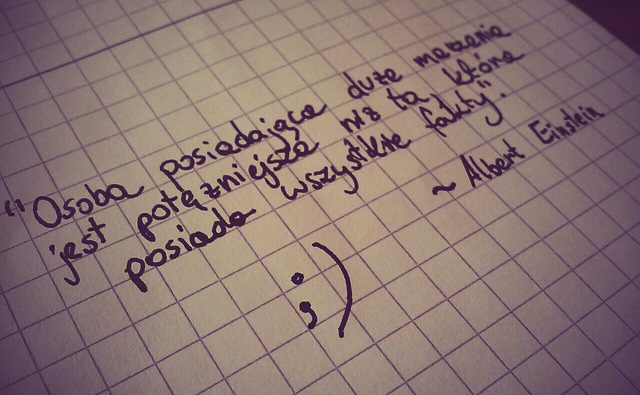 "Osoba posiadająca duże marzenia
jest potężniejsza niż ta, która
posiada wszystkie fakty".
~ Albert Einstein
;)